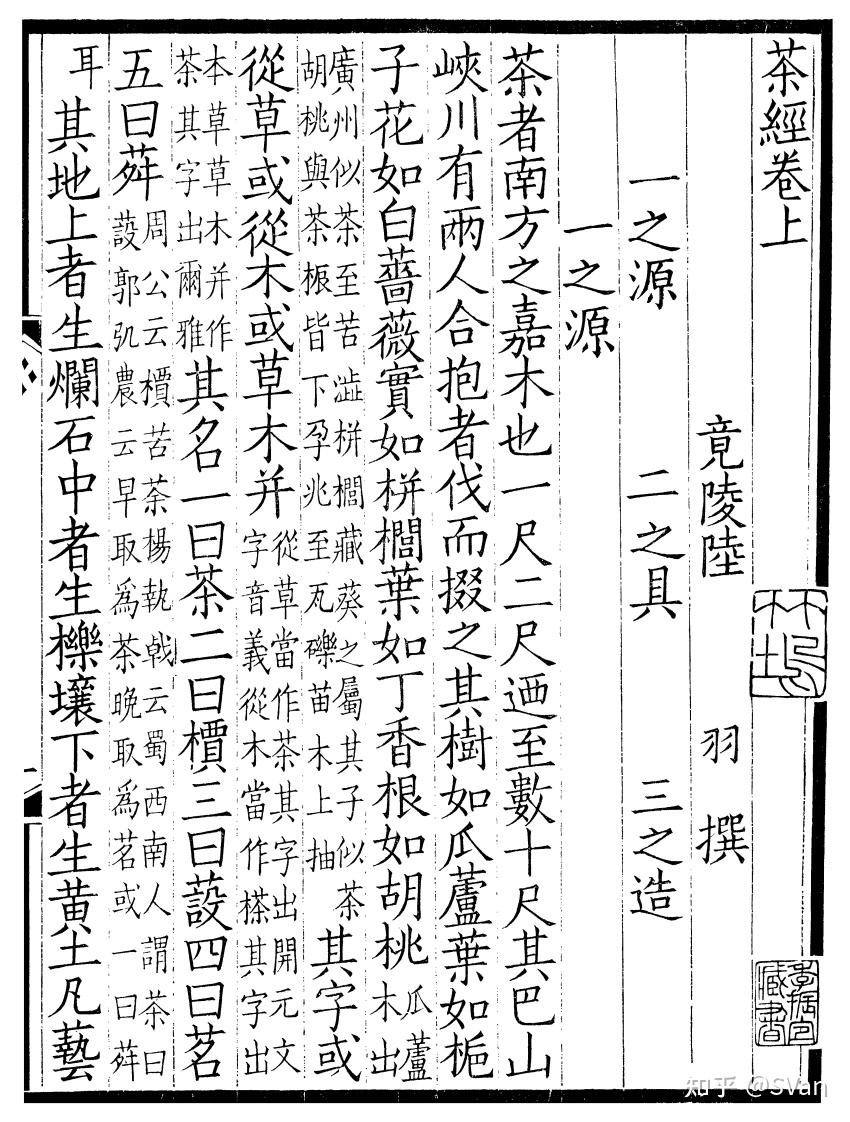 茶經卷上
竟陵陸 羽 撰
一之源 二之具 三之造
一之源
茶者南方之嘉木也一尺二尺迺至數十尺其巴山
峽川有兩人合抱者伐而掇之其樹如瓜蘆葉如梔
子花如白薔薇實如栟櫚葉如丁香根如胡桃瓜蘆木出
廣州似茶至苦澁栟櫚藏葵之屬其子似茶胡桃與茶桭皆下孕兆至瓦礫苗木上抽其字或
從草或從木或草木并從草當作茶其字出開元文字音義從木當作搽其字出
本草草木并作茶其字出爾雅其名一曰茶二曰檟三曰蔎四曰茗
五曰荈周公云檟苦荼楊執戟云蜀西南人謂茶曰蔎郭弘農云早取為茶晚取為茗或一曰荈
耳其地上者生爛石中者生櫟壤下者生黄土凡藝
藏書
知乎 @SVan